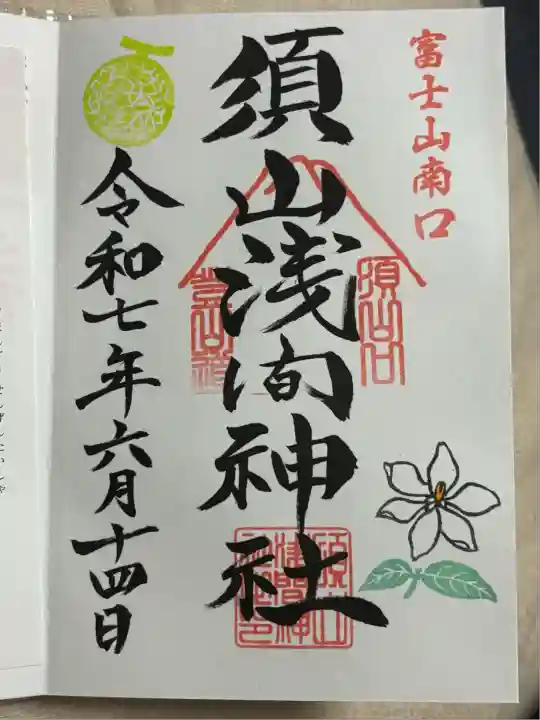 富士山南口
須山浅間神社
須山口
登山道
令和七年六月十四日